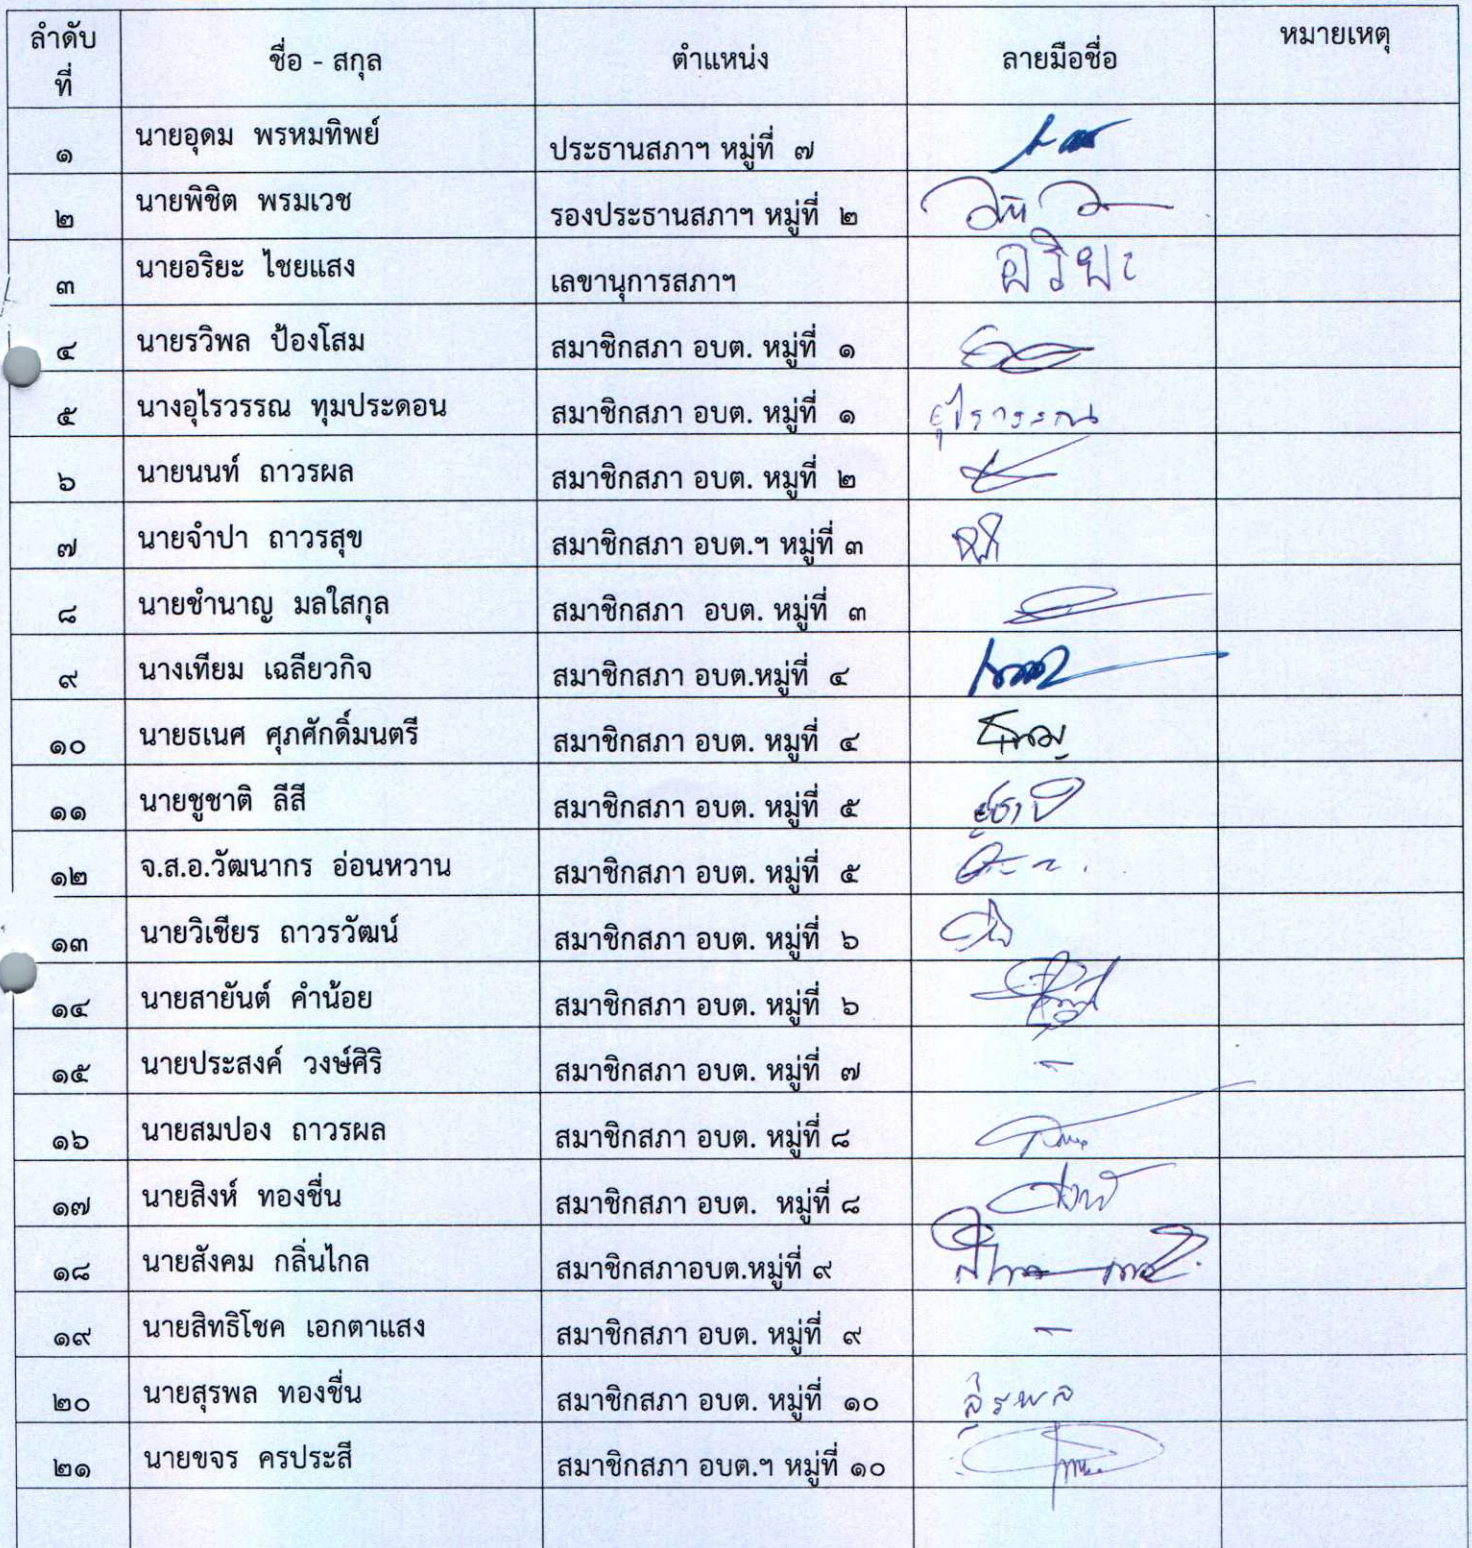 ลำดับที่ ชื่อ - สกุล ตำแหน่ง ลายมือชื่อ หมายเหตุ
๑ นายอุดม พรหมทิพย์ ประธานสภาฯ หมู่ที่ ๗
๒ นายพิชิต พรมเวช รองประธานสภาฯ หมู่ที่ ๒
๓ นายอริยะ ไชยแสง เลขานุการสภาฯ อริยะ
๔ นายรวิพล ป้องโสม สมาชิกสภา อบต. หมู่ที่ ๑
๕ นางอุไรวรรณ ทุมประดอน สมาชิกสภา อบต. หมู่ที่ ๑ อุไรวรรณ
๖ นายนนท์ ถาวรผล สมาชิกสภา อบต. หมูที่ ๒
๗ นายจำปา ถาวรสุข สมาชิกสภา อบต.ฯ หมู่ที่ ๓
๘ นายชำนาญ มลใสกุล สมาชิกสภา อบต. หมู่ที่ ๓
๙ นางเทียม เฉลียวกิจ สมาชิกสภา อบต.หมู่ที่ ๔
๑๐ นายธเนศ ศุภศักดิ์มนตรี สมาชิกสภา อบต. หมูที่ ๔
๑๑ นายชูชาติ ลีสี สมาชิกสภา อบต. หมู่ที่ ๕
๑๒ จ.ส.อ.วัฒนากร อ่อนหวาน สมาชิกสภา อบต. หมู่ที่ ๕
๑๓ นายวิเชียร ถาวรวัฒน์ สมาชิกสภา อบต. หมู่ที่ ๖
๑๔ นายสายันต์ คำน้อย สมาชิกสภา อบต. หมู่ที่ ๖
๑๕ นายประสงค์ วงษ์ศิริ สมาชิกสภา อบต. หมู่ที่ ๗ -
๑๖ นายสมปอง ถาวรผล สมาชิกสภา อบต. หมู่ที่ ๘
๑๗ นายสิงห์ ทองชื่น สมาชิกสภา อบต. หมู่ที่ ๘
๑๘ นายสังคม กลิ่นไกล สมาชิกสภาอบต.หมู่ที่ ๙
๑๙ นายสิทธิโชค เอกตาแสง สมาชิกสภา อบต. หมู่ที่ ๙ -
๒๐ นายสุรพล ทองชื่น สมาชิกสภา อบต. หมู่ที่ ๑๐ สุรพล
๒๑ นายขจร ครประสี สมาชิกสภา อบต.ฯ หมู่ที่ ๑๐